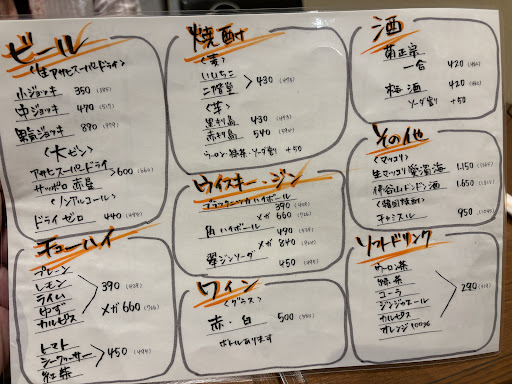 ビール
〈生〉アサヒスーパードライ
小ジョッキ 350 (385)
中ジョッキ 470 (517)
男気ジョッキ 890 (979)
〈大ビン〉
アサヒスーパードライ
サッポロ赤星
600 (660)
〈ノンアルコール〉
ドライゼロ 440 (484)
チューハイ
プレーン
レモン
ライム
ゆず
カルピス
390 (429)
メガ 660 (726)
トマト
シークヮーサー
紅茶
450 (495)
焼酎
〈麦〉
いいちこ
二階堂
430 (473)
〈芋〉
黒利島 430 (473)
赤利島 540 (594)
ウーロン・緑茶・ソーダ割り +50
ウイスキー・ジン
ブラックニッカハイボール
390 (429)
メガ 660 (726)
角ハイボール 490
メガ 840
翠ジンソーダ 450 (495)
ワイン
〈グラス〉
赤・白 500 (550)
ボトルあります
酒
菊正宗
一合 420 (462)
梅酒 420 (462)
ソーダ割り +50
その他
〈マッコリ〉
生マッコリ 1,150
ドンドン酒 1,650
〈韓国焼酎〉
チャミスル 950 (1045)
ソフトドリンク
ウーロン茶
緑茶
コーラ
ジンジャエール
カルピス
オレンジ100%